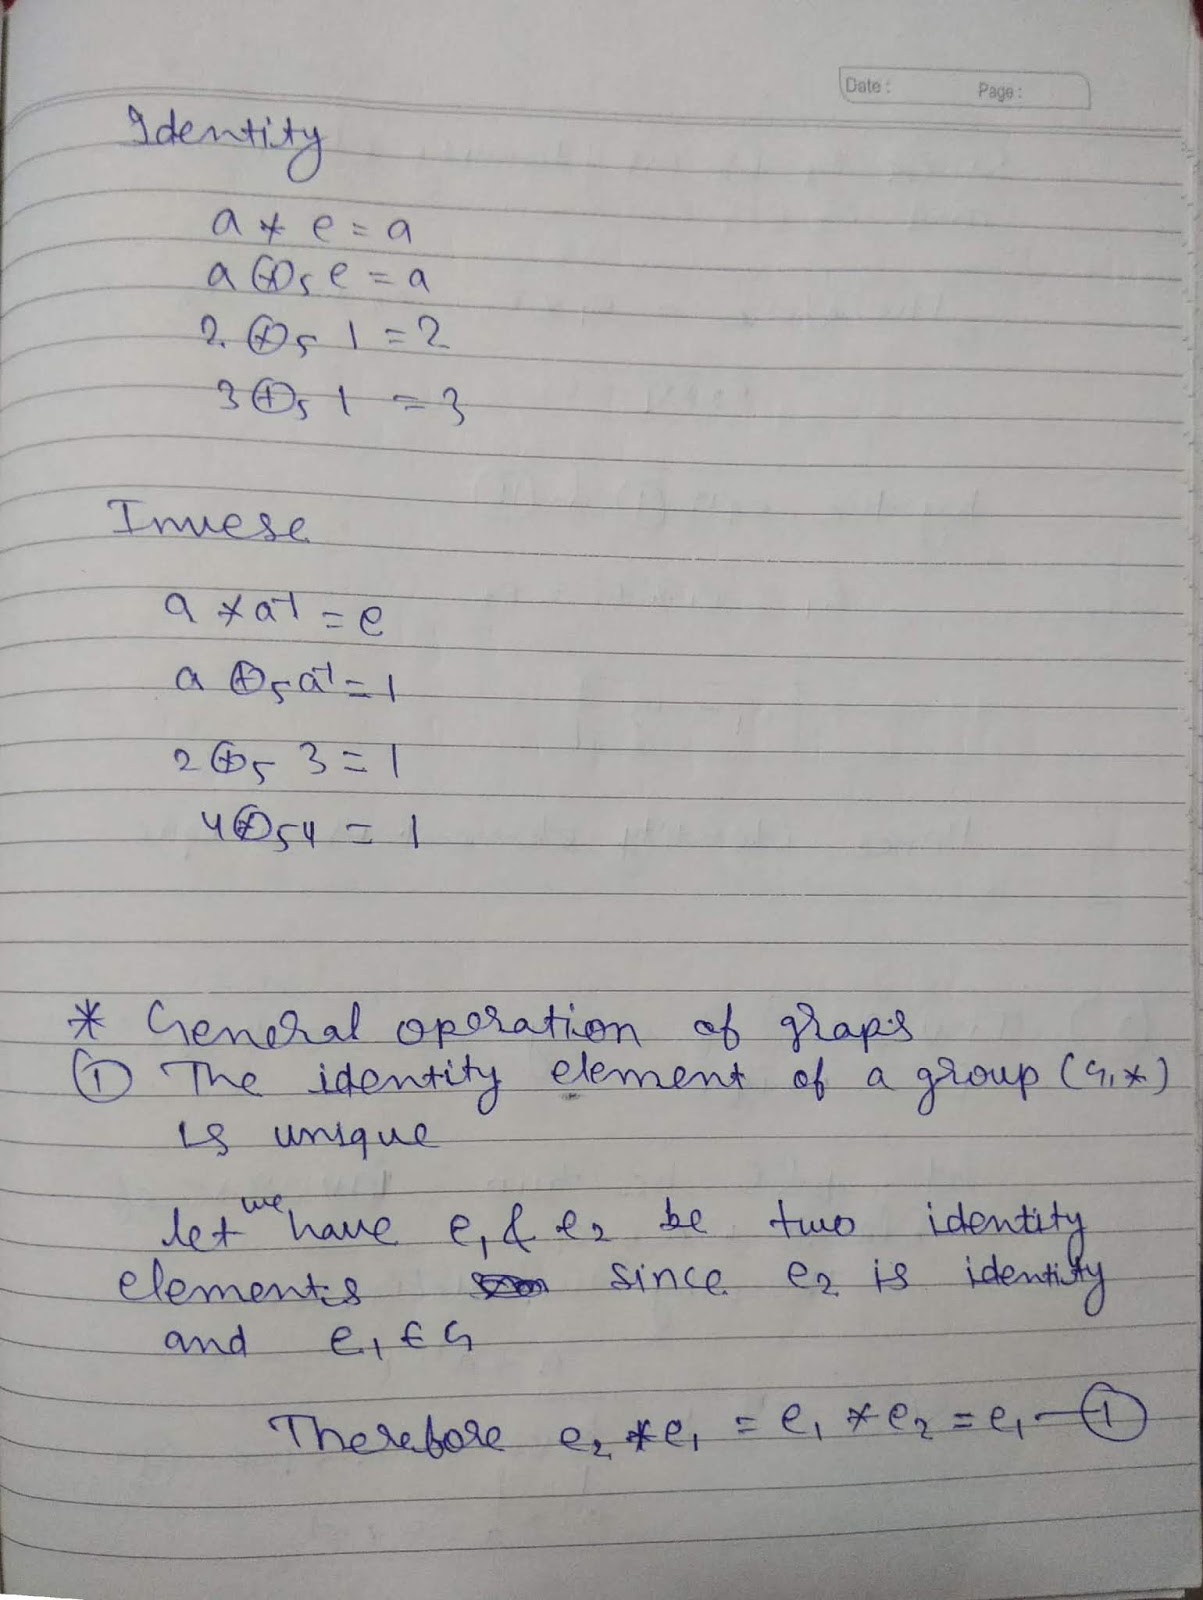 Date : Page :
Identity
a * e = a
a ⊗₅ e = a
2 ⊗₅ 1 = 2
3 ⊕₅ 1 = 3
Invese
a * a⁻¹ = e
a ⊕₅ a⁻¹ = 1
2 ⊕₅ 3 = 1
4 ⊗₅ 4 = 1
* General operation of graps
① The identity element of a group (G, *)
is unique
let we have e₁ & e₂ be two identity
elements since e₂ is identity
and e₁ ∈ G
Therefore e₂ * e₁ = e₁ * e₂ = e₁ — ①